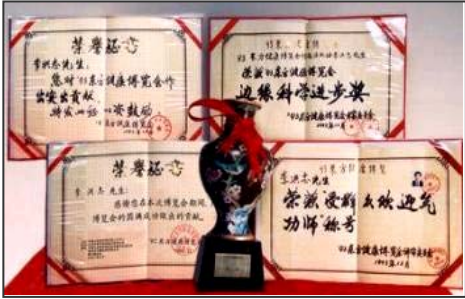 荣誉证书
李洪志先生:
您对'93东方健康博览会作
出突出贡献,
特发此证,以资鼓励。
'93东方健康博览会
李洪志先生
荣获'93东方健康博览会
边缘科学进步奖
'93东方健康博览会
1993年12月
荣誉证书
李洪志先生:
感谢您在本次博览会期间,
博览会的圆满成功做出的贡献。
'92东方健康博览会
'93东方健康博览
李洪志先生
荣获受群众欢迎气
功师称号
'93东方健康博览会
1993年12月